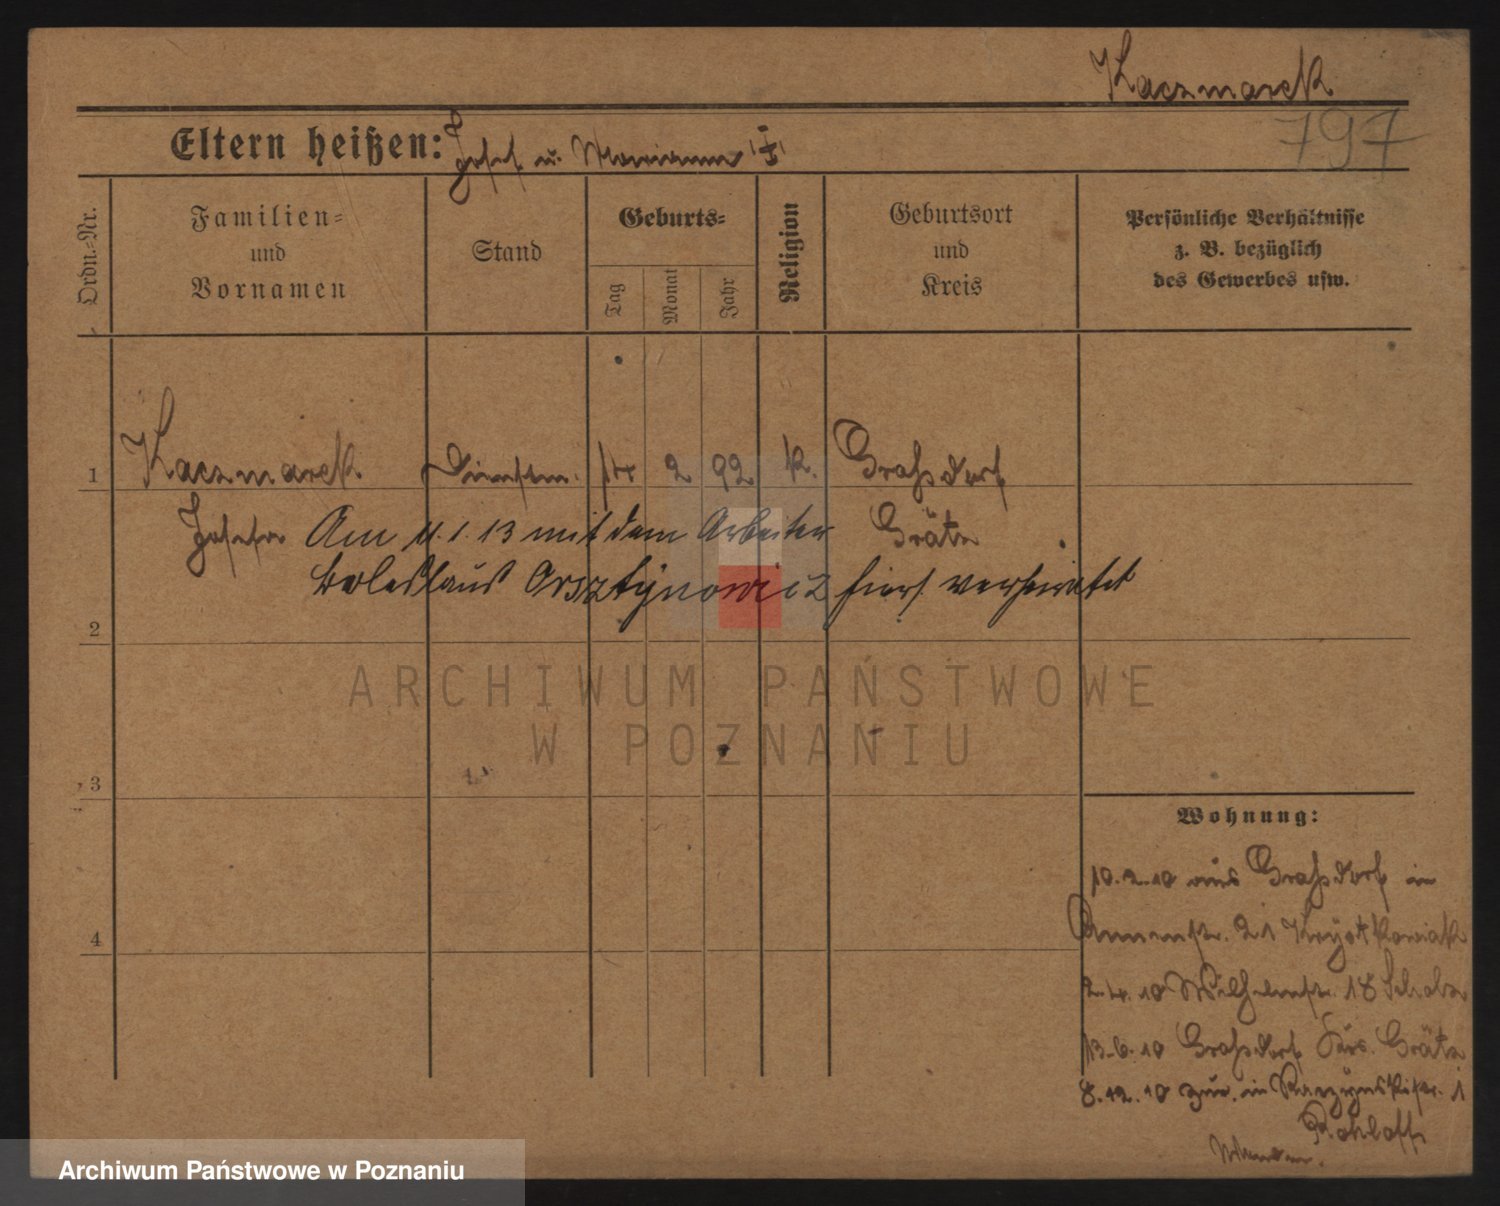 Kaczmarek
797
Eltern heißen: Josef u. Marianna
Ordn.=Nr.
Familien=
und
Vornamen
Stand
Geburts=
Tag
Monat
Jahr
Religion
Geburtsort
und
Kreis
Persönliche Verhältnisse
z. B. bezüglich
des Gewerbes usw.
1 Kaczmarek Dienstm. 14 2 92 k. Graßdorf
Josefa Am 11.1.13 mit dem Arbeiter Grätz
Boleslaus hier verheiratet
2
ARCHIWUM PAŃSTWOWE
W POZNANIU
3
Wohnung:
10.2.10 aus Graßdorf in
4
21
2.4.10 Wilhelmstr. 18
13.6.10 Graßdorf Krs. Grätz
8.12.10 zur. in 1
Rohloff
Archiwum Państwowe w Poznaniu